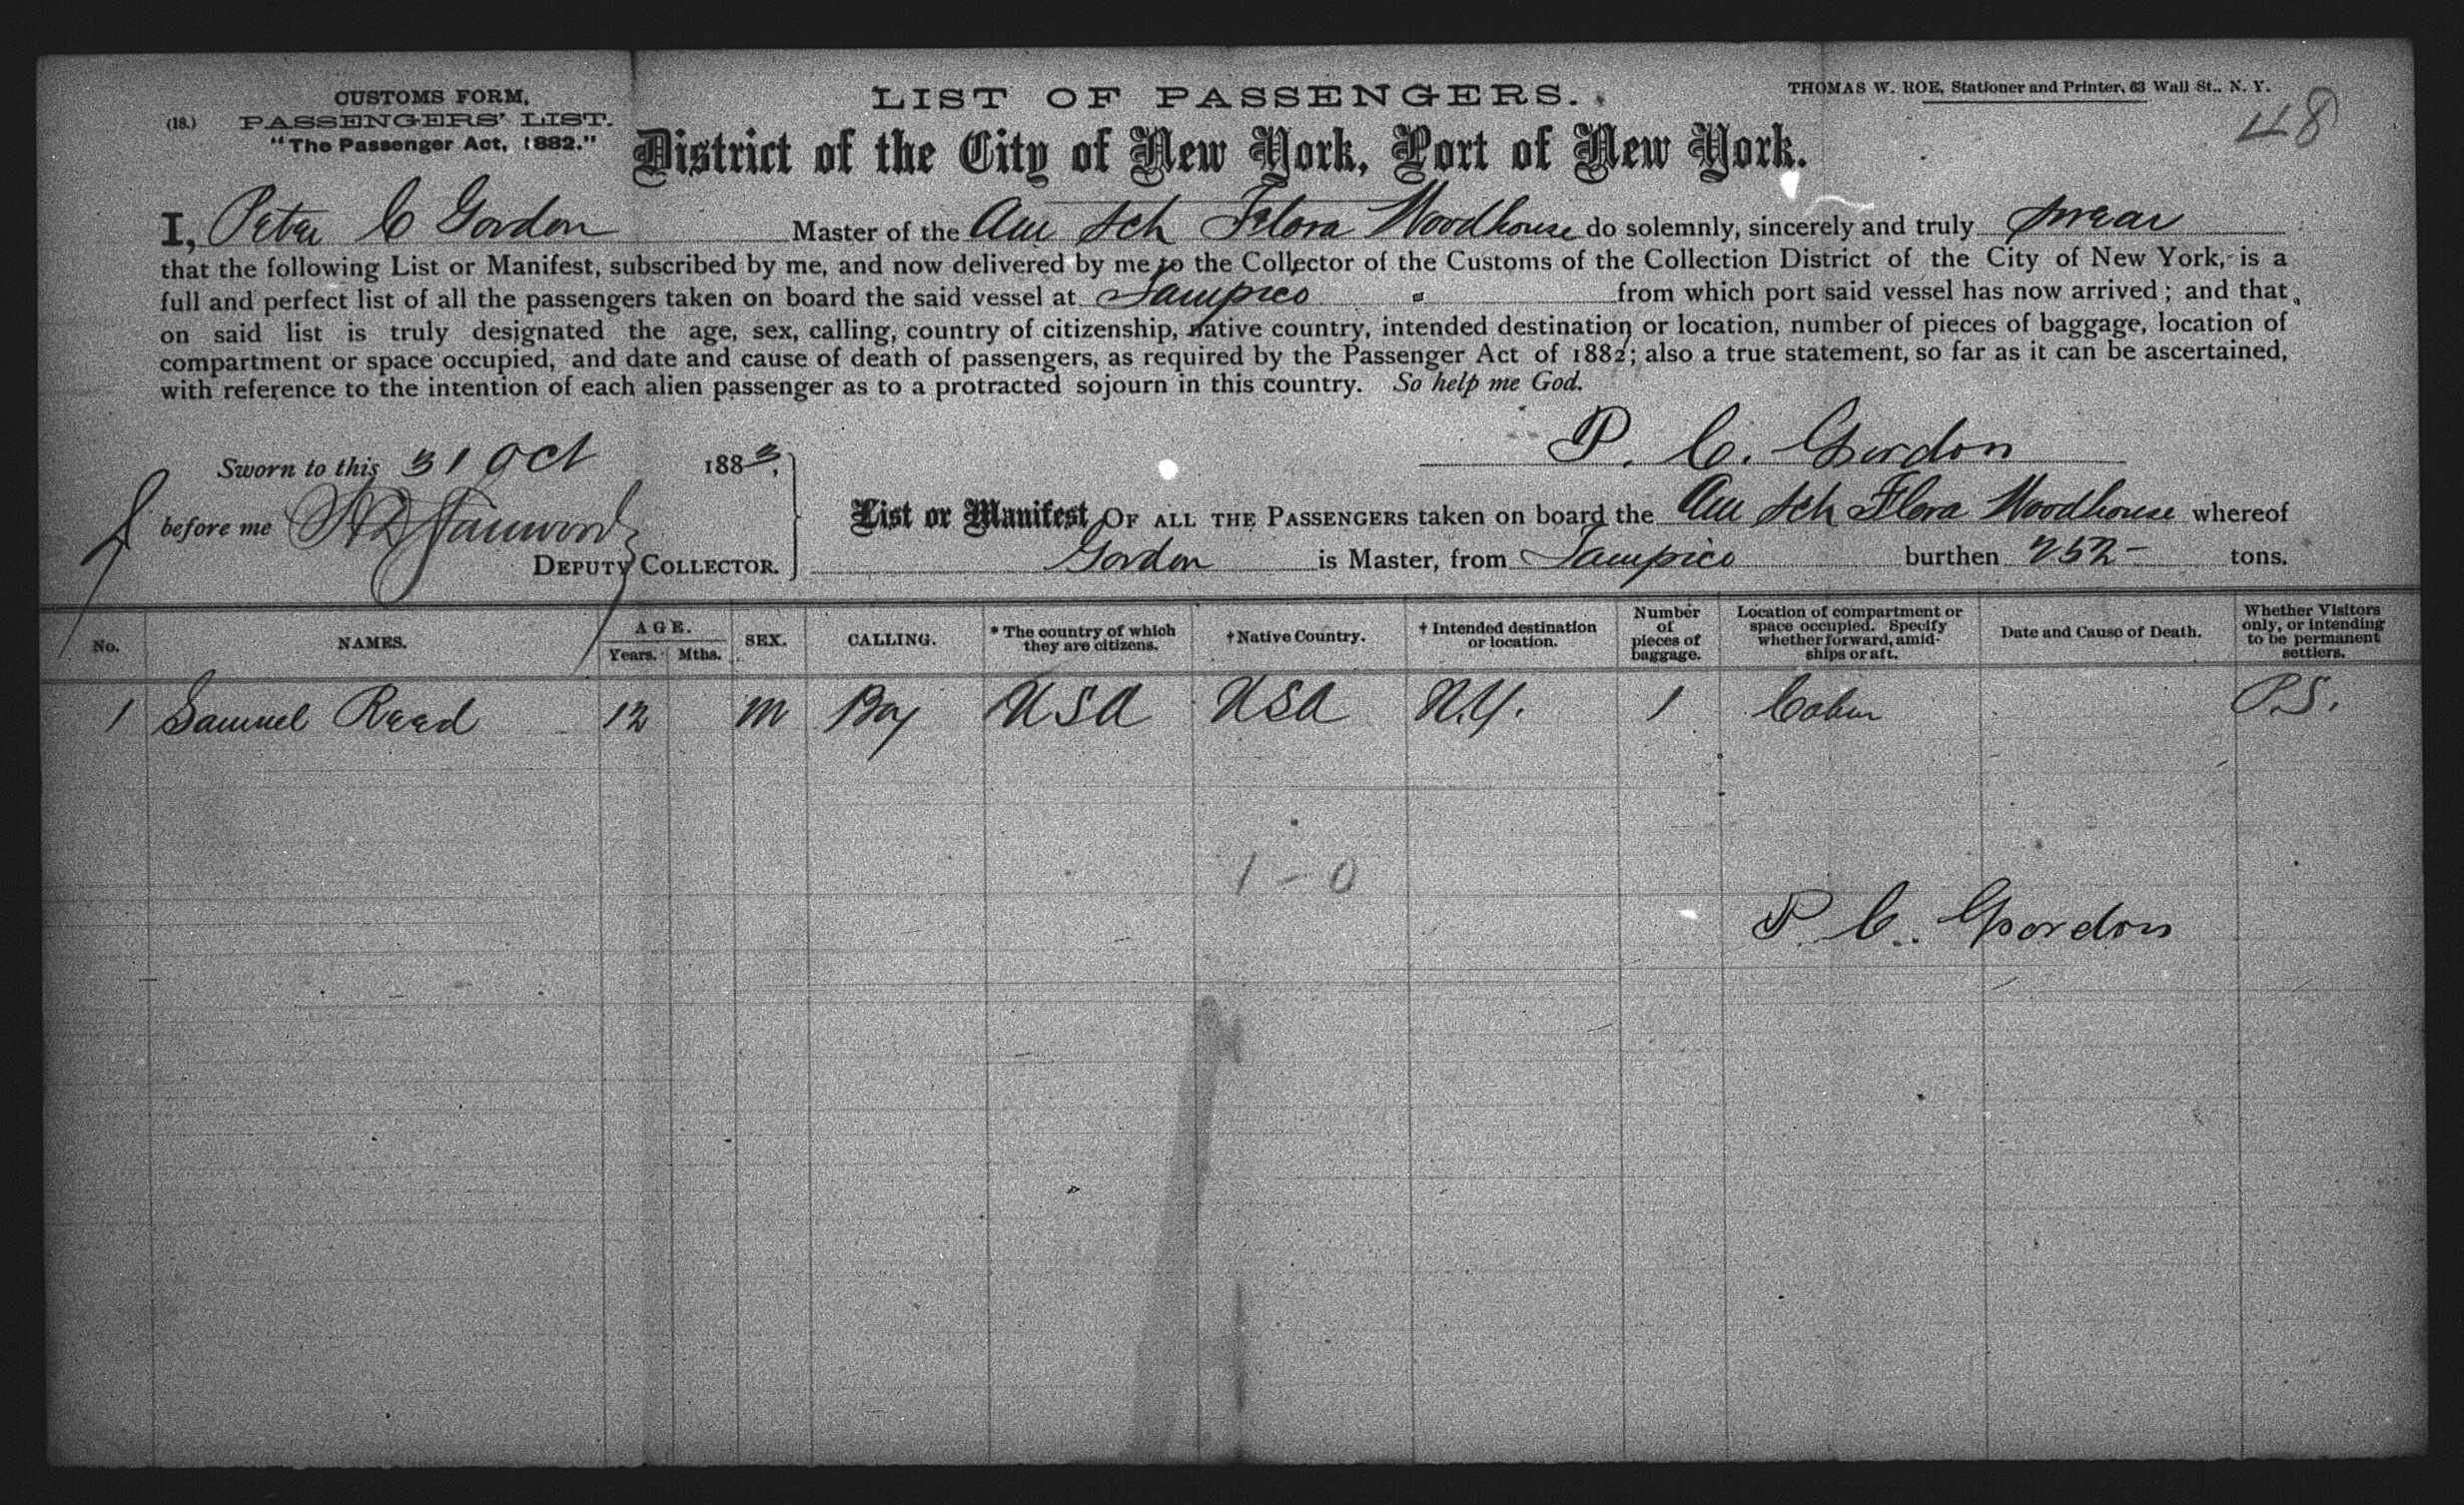 CUSTOMS FORM,
(18.) PASSENGERS' LIST.
"The Passenger Act, 1882."
LIST OF PASSENGERS.
THOMAS W. ROE, Stationer and Printer, 63 Wall St., N. Y.
48
District of the City of New York, Port of New York.
I, Peter C Gordon Master of the Am Sch Flora Woodhouse do solemnly, sincerely and truly swear
that the following List or Manifest, subscribed by me, and now delivered by me to the Collector of the Customs of the Collection District of the City of New York, is a
full and perfect list of all the passengers taken on board the said vessel at Tampico from which port said vessel has now arrived; and that
on said list is truly designated the age, sex, calling, country of citizenship, native country, intended destination or location, number of pieces of baggage, location of
compartment or space occupied, and date and cause of death of passengers, as required by the Passenger Act of 1882; also a true statement, so far as it can be ascertained,
with reference to the intention of each alien passenger as to a protracted sojourn in this country. So help me God.
P. C. Gordon
Sworn to this 31 Oct 1883,
before me
DEPUTY COLLECTOR.
List or Manifest OF ALL THE PASSENGERS taken on board the Am Sch Flora Woodhouse whereof
Gordon is Master, from Tampico burthen 252 - tons.
No. NAMES. AGE. Years. Mths. SEX. CALLING. * The country of which they are citizens. † Native Country. † Intended destination or location. Number of pieces of baggage. Location of compartment or space occupied. Specify whether forward, amidships or aft. Date and Cause of Death. Whether Visitors only, or intending to be permanent settlers.
1 Samuel Reed 12 m Boy USA USA N.Y. 1 Cabin P.S.
1 - 0
P. C. Gordon